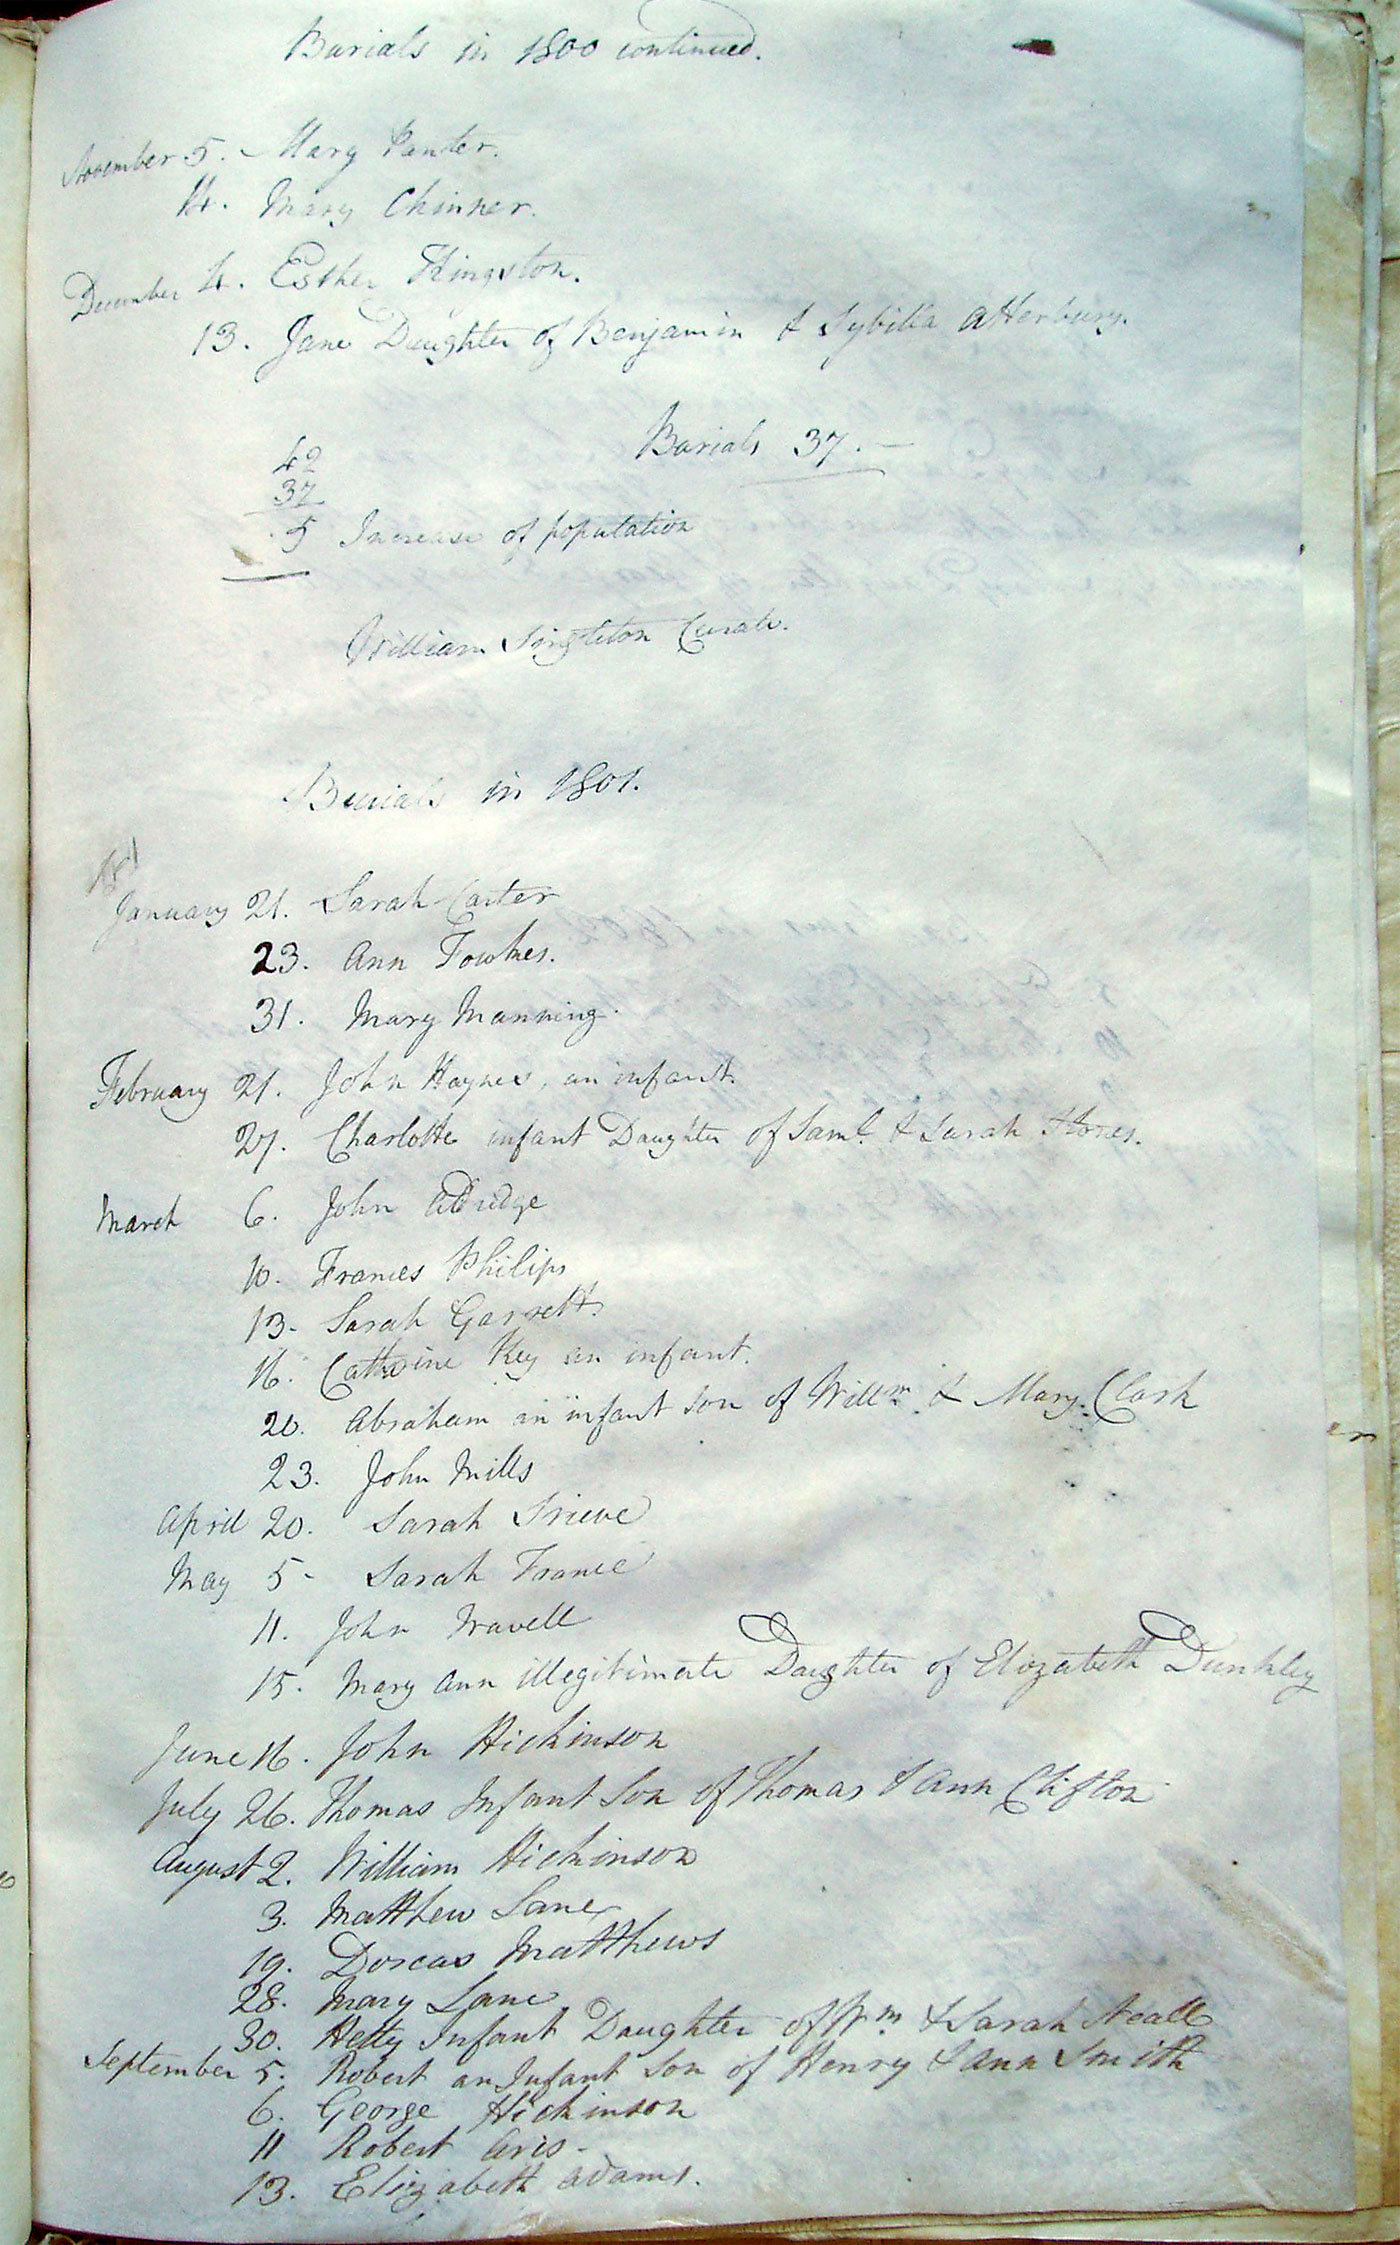 Burials in 1800 continued.
November 5. Mary Panter.
14. Mary Chinner.
December 4. Esther Kingston.
13. Jane Daughter of Benjamin & Sybilla Atterbury.
Burials 37.
42
37
5 Increase of population
William Singleton Curate.
Burials in 1801.
1801
January 21. Sarah Carter
23. Ann Fowkes.
31. Mary Manning.
February 21. John Haynes, an infant.
27. Charlotte infant Daughter of Saml. & Sarah Stones.
March 6. John Aldridge
10. Frances Philips
13. Sarah Garrett.
16. Cathrine Key an infant.
20. Abraham an infant son of Willm. & Mary Clark
23. John Mills
April 20. Sarah
May 5 - Sarah France
11. John Wavell
15. Mary Ann illegitimate Daughter of Elizabeth Dunkley
June 16. John Hickinson
July 26. Thomas Infant Son of Thomas & Ann Clifton
August 2. William Hickinson
3. Matthew Lane
19. Dorcas Matthews
28. Mary Lane
30. Hetty Infant Daughter of Wm. & Sarah Neall
September 5. Robert an Infant Son of Henry & Ann Smith
6. George Hickinson
11 Robert Aris -
13. Elizabeth Adams.